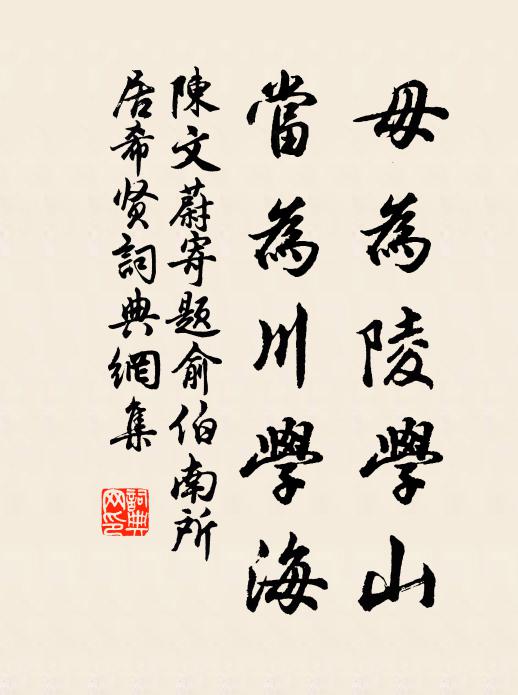 毋為陵學山
當為川學海
陳文蔚寄題俞伯南所
居希贤詞典網集
詞典
网印